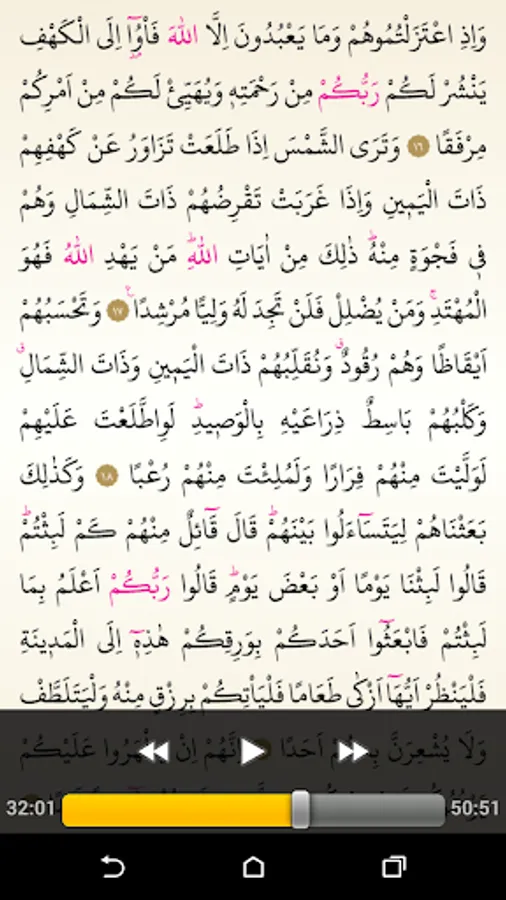 وَاِذِ اعْتَزَلْتُمُوهُمْ وَمَا يَعْبُدُونَ اِلَّا اللّٰهَ فَأْوُٓ۫ا اِلَى الْكَهْفِ
يَنْشُرْ لَكُمْ رَبُّكُمْ مِنْ رَحْمَتِه۪ وَيُهَيِّئْ لَكُمْ مِنْ اَمْرِكُمْ
مِرْفَقًا ١٦ وَتَرَى الشَّمْسَ اِذَا طَلَعَتْ تَزَاوَرُ عَنْ كَهْفِهِمْ
ذَاتَ الْيَم۪ينِ وَاِذَا غَرَبَتْ تَقْرِضُهُمْ ذَاتَ الشِّمَالِ وَهُمْ
ف۪ي فَجْوَةٍ مِنْهُۜ ذٰلِكَ مِنْ اٰيَاتِ اللّٰهِۜ مَنْ يَهْدِ اللّٰهُ فَهُوَ
الْمُهْتَدِۚ وَمَنْ يُضْلِلْ فَلَنْ تَجِدَ لَهُ وَلِيًّا مُرْشِدًا۟ ١٧ وَتَحْسَبُهُمْ
اَيْقَاظًا وَهُمْ رُقُودٌۗ وَنُقَلِّبُهُمْ ذَاتَ الْيَم۪ينِ وَذَاتَ الشِّمَالِۗ
وَكَلْبُهُمْ بَاسِطٌ ذِرَاعَيْهِ بِالْوَص۪يدِۜ لَوِاطَّلَعْتَ عَلَيْهِمْ
لَوَلَّيْتَ مِنْهُمْ فِرَارًا وَلَمُلِئْتَ مِنْهُمْ رُعْبًا ١٨ وَكَذٰلِكَ
بَعَثْنَاهُمْ لِيَتَسَٓاءَلُوا بَيْنَهُمْۜ قَالَ قَٓائِلٌ مِنْهُمْ كَمْ لَبِثْتُمْۜ
قَالُوا لَبِثْنَا يَوْمًا اَوْ بَعْضَ يَوْمٍۜ قَالُوا رَبُّكُمْ اَعْلَمُ بِمَا
لَبِثْتُمْ فَابْعَثُٓوا اَحَدَكُمْ بِوَرِقِكُمْ هٰذِه۪ٓ اِلَى الْمَد۪ينَةِ
فَلْيَنْظُرْ اَيُّهَٓا اَزْكٰى طَعَامًا فَلْيَأْتِكُمْ بِرِزْقٍ مِنْهُ وَلْيَتَلَطَّفْ
وَلَا يُشْعِرَنَّ بِكُمْ اَحَدًا اِنَّهُمْ اِنْ يَظْهَرُوا عَلَيْكُمْ
32:01 50:51